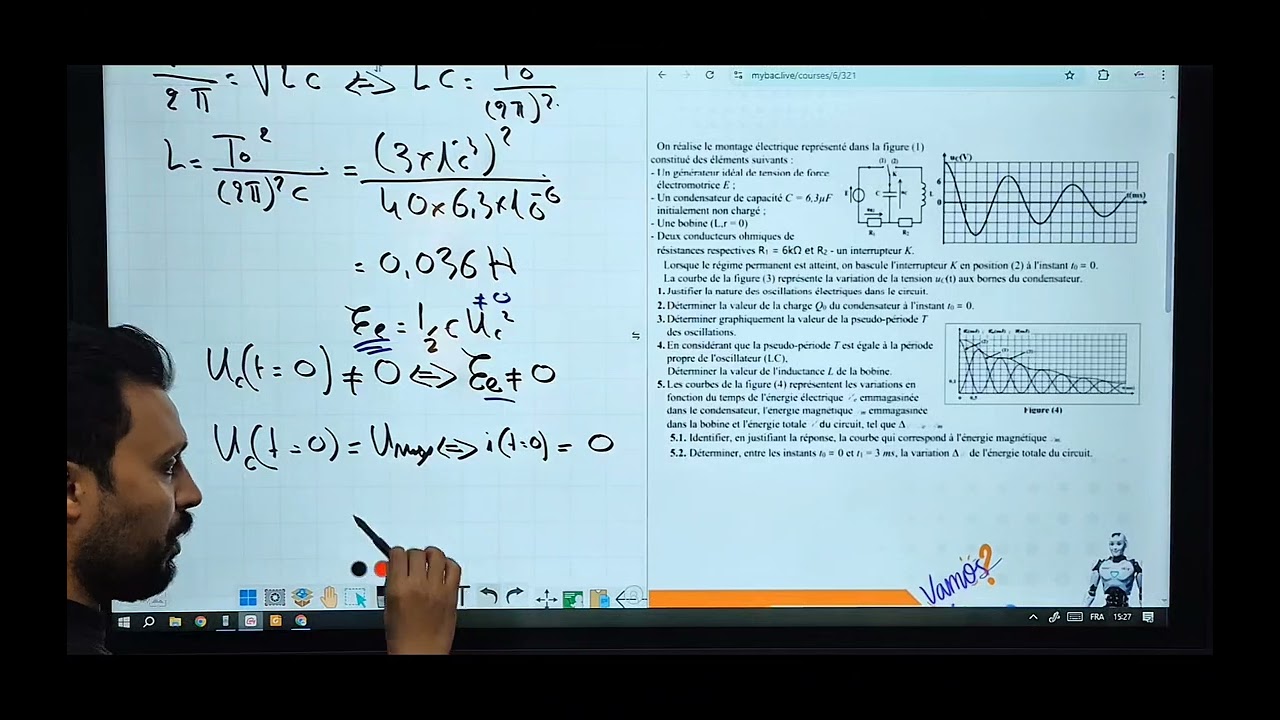 2π = √LC ⟺ LC = To / (2π)².
L = To² / (2π)² C = (3×10⁻³)² / 40×6,3×10⁻⁶
= 0,036 H
≠ 0
Ee = 1/2 C Uc²
Uc(t=0) ≠ 0 ⟺ Ee ≠ 0
Uc(t=0) = Umax ⟺ i(t=0) = 0
mybac.live/courses/6/321
On réalise le montage électrique représenté dans la figure (1)
constitué des éléments suivants :
- Un générateur idéal de tension de force
électromotrice E ;
- Un condensateur de capacité C = 6,3µF
initialement non chargé ;
- Une bobine (L,r = 0)
- Deux conducteurs ohmiques de
résistances respectives R₁ = 6kΩ et R₂ - un interrupteur K.
(1) (2)
K
E
C
L
R₁
R₂
uc(V)
6
0
t(ms)
Lorsque le régime permanent est atteint, on bascule l'interrupteur K en position (2) à l'instant t₀ = 0.
La courbe de la figure (3) représente la variation de la tension uc(t) aux bornes du condensateur.
1. Justifier la nature des oscillations électriques dans le circuit.
2. Déterminer la valeur de la charge Q₀ du condensateur à l'instant t₀ = 0.
3. Déterminer graphiquement la valeur de la pseudo-période T
des oscillations.
4. En considérant que la pseudo-période T est égale à la période
propre de l'oscillateur (LC),
Déterminer la valeur de l'inductance L de la bobine.
5. Les courbes de la figure (4) représentent les variations en
fonction du temps de l'énergie électrique emmagasinée
dans le condensateur, l'énergie magnétique emmagasinée
dans la bobine et l'énergie totale du circuit, tel que Δ
5.1. Identifier, en justifiant la réponse, la courbe qui correspond à l'énergie magnétique
5.2. Déterminer, entre les instants t₀ = 0 et t₁ = 3 ms, la variation Δ de l'énergie totale du circuit.
(2)
(1)
(3)
0
0,5
Figure (4)
Vamos ?
FRA
15:27